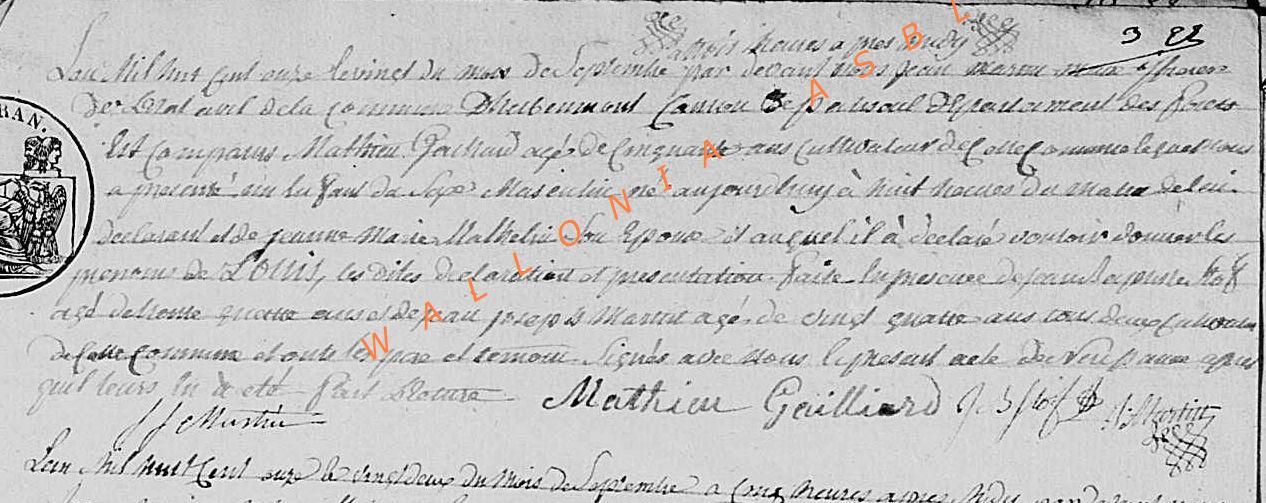 a trois heures apres midy
3 
L'an Mil huit cent onze le vingt du mois de Septembre par devant nous jean martin maire officier
de l'etat civil de la commune D'herbeumont Canton de paliseul departement des forets
Est Comparus Mathieu Gaillard agé de Cinquante ans Cultivateur de Cette Commune lequel nous
a presenté un Enfant du Sexe Masculin né aujourdhuy à huit heures du matin de lui
declarant et de jeanne Marie Mathelin Son Epouse et auquel il à declaré vouloir donner les
prenoms de LOUIS, les dites declaration et presentation faite En presence de jean baptiste
agé de trente quatre ans et de jean joseph Martin agé de vingt quatre ans tous deux Cultivateur
de Cette Commune et ont les pere et temoin Signés avec nous le present acte de naissance apres
quil leurs En à eté fait lecture
Mathieu Gailliard J. B. Martin
J J Martin
WALLONIA ASBL
RAN.
L'an Mil huit Cent onze le vingt deux du mois de Septembre a Cinq heures apres Midy par devant